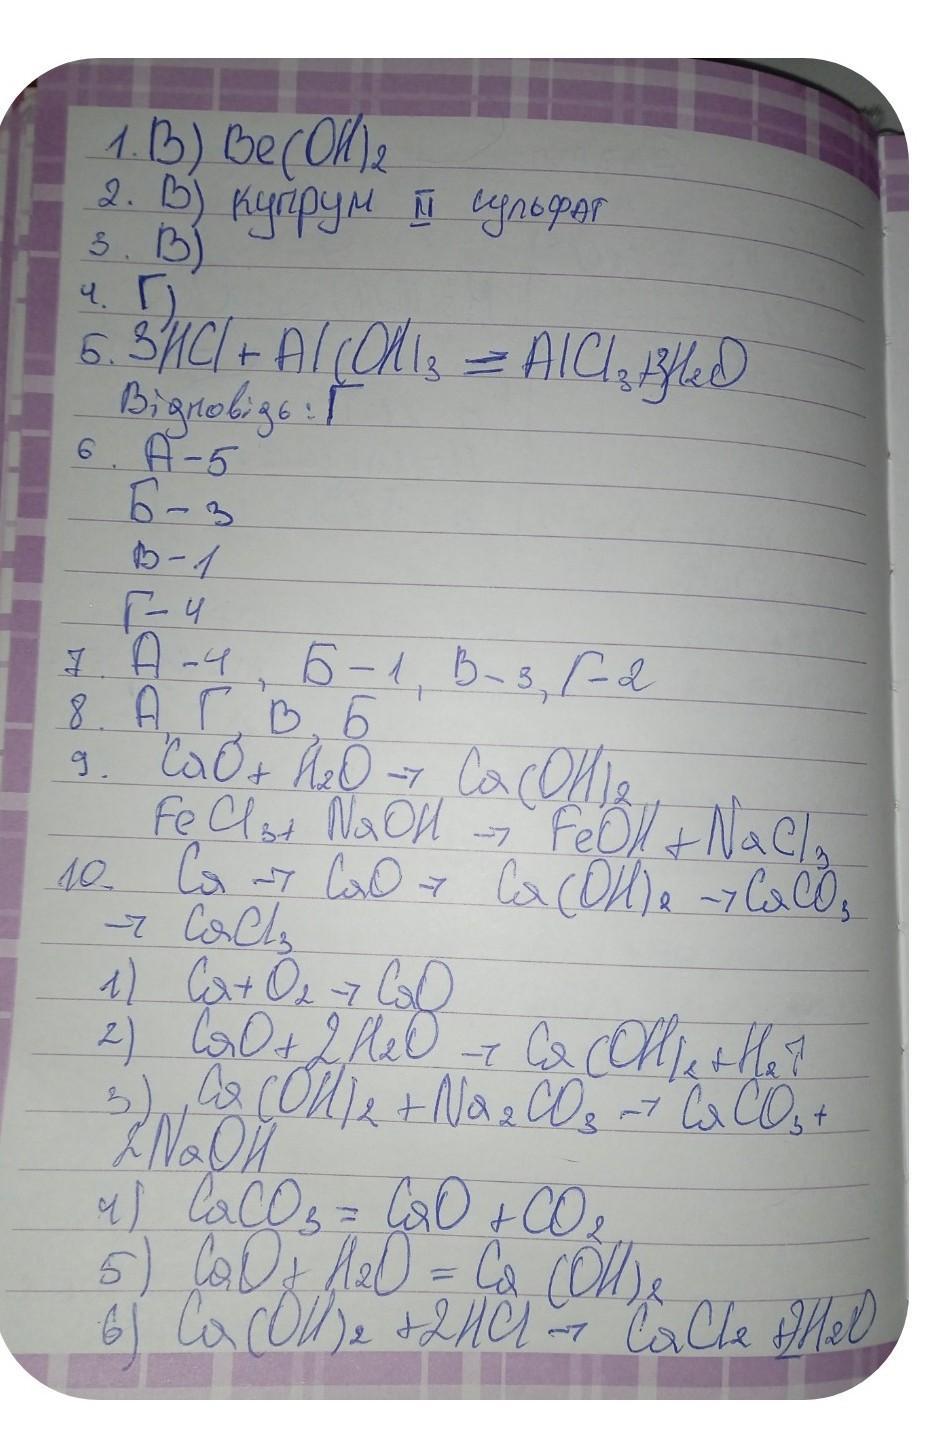 1. В) Be(OH)2
2. В) купрум II сульфат
3. В)
4. Г)
5. 3HCl + Al(OH)3 = AlCl3+3H2O
Відповідь: Г
6. А-5
Б-3
В-1
Г-4
7. А-4, Б-1, В-3, Г-2
8. А, Г, В, Б
9. CaO + H2O → Ca(OH)2
FeCl3 + NaOH → FeOH + NaCl3
10. Ca → CaO → Ca(OH)2 → CaCO3
→ CaCl3
1) Ca + O2 → CaO
2) CaO + 2H2O → Ca(OH)2 + H2↑
3) Ca(OH)2 + Na2CO3 → CaCO3 +
2NaOH
4) CaCO3 = CaO + CO2
5) CaO + H2O = Ca(OH)2
6) Ca(OH)2 + 2HCl → CaCl2 + 2H2O